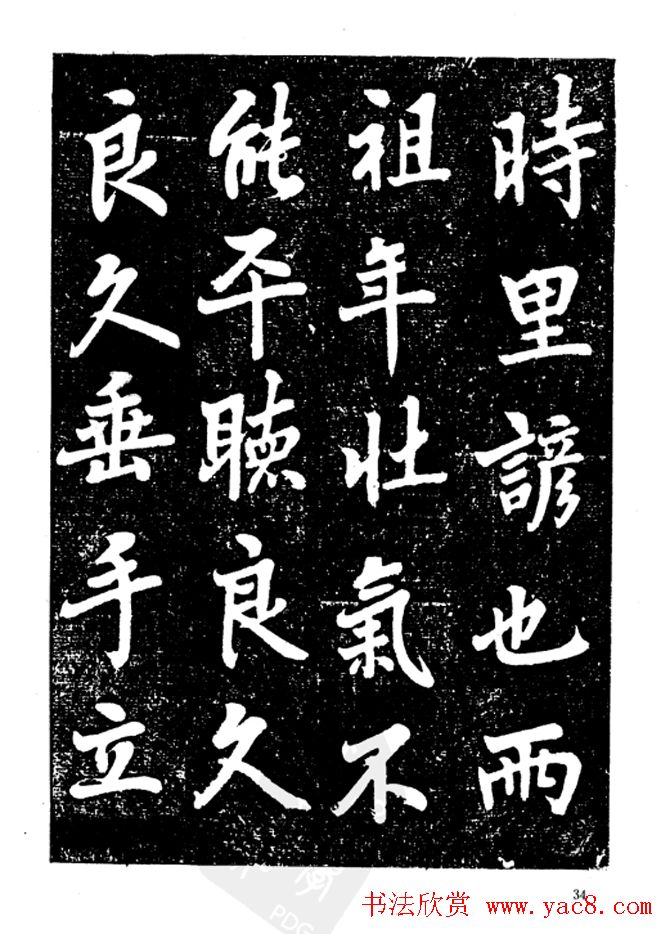 時里諺也兩
祖年壯氣不
能平聴良久
良久垂手立
34
书法欣赏 www.yac8.com
PDG